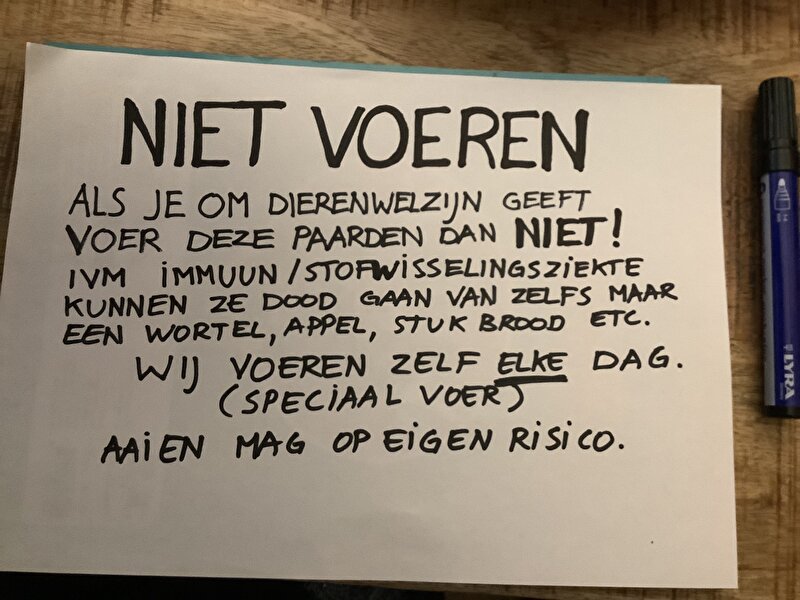 NIET VOEREN
ALS JE OM DIERENWELZIJN GEEFT
VOER DEZE PAARDEN DAN NIET!
IVM IMMUUN/STOFWISSELINGSZIEKTE
KUNNEN ZE DOOD GAAN VAN ZELFS MAAR
EEN WORTEL, APPEL, STUK BROOD ETC.
WIJ VOEREN ZELF ELKE DAG.
(SPECIAAL VOER)
AAIEN MAG OP EIGEN RISICO.
LYRA